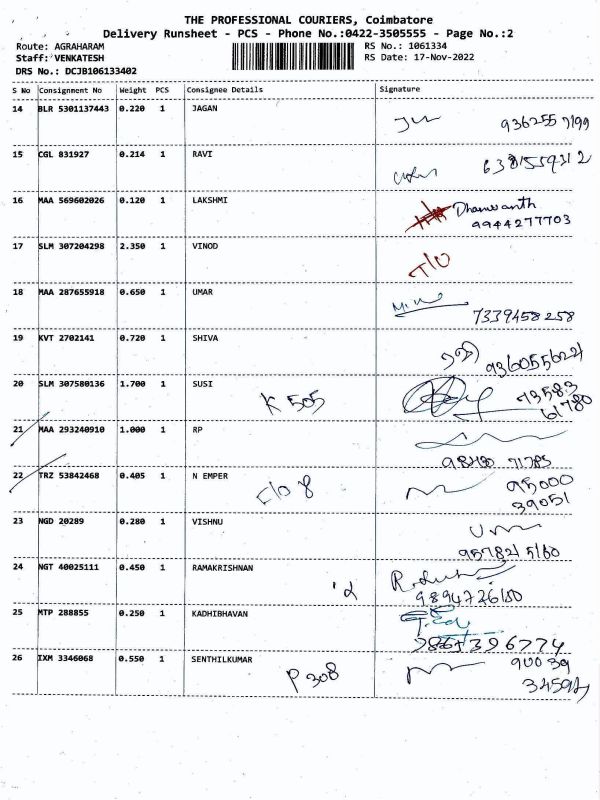 THE PROFESSIONAL COURIERS, Coimbatore
Delivery Runsheet - PCS - Phone No.:0422-3505555 - Page No.:2
Route: AGRAHARAM RS No.: 1061334
Staff: VENKATESH RS Date: 17-Nov-2022
DRS No.: DCJB106133402
S No Consignment No Weight PCS Consignee Details Signature
14 BLR 5301137443 0.220 1 JAGAN
9362557199
15 CGL 831927 0.214 1 RAVI
6381559312
16 MAA 569602026 0.120 1 LAKSHMI
9944277703
17 SLM 307204298 2.350 1 VINOD
T/O
18 MAA 287655918 0.650 1 UMAR
7339458258
19 KVT 2702141 0.720 1 SHIVA
20 SLM 307580136 1.700 1 SUSI
K 505
73583
61780
21 MAA 293240910 1.000 1 RP
22 TRZ 53842468 0.405 1 N EMPER
95000
39051
23 NGD 20289 0.280 1 VISHNU
24 NGT 40025111 0.450 1 RAMAKRISHNAN
25 MTP 288855 0.250 1 KADHIBHAVAN
26 IXM 3346068 0.550 1 SENTHILKUMAR
P 308
90039